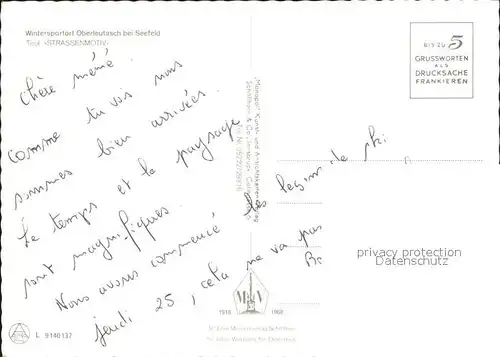 Wintersportort Oberleutasch bei Seefeld
Tirol »STRASSENMOTIV«
BIS ZU 5
GRUSSWORTEN
ALS
DRUCKSACHE
FRANKIEREN
Chère mémé.
Comme tu vois nous
sommes bien arrivées.
Le temps et le paysage
sont magnifiques.
Nous avons commencé les leçons de ski
jeudi 25, cela ne va pas
privacy protection
Datenschutz
1918 1968
L 9140137